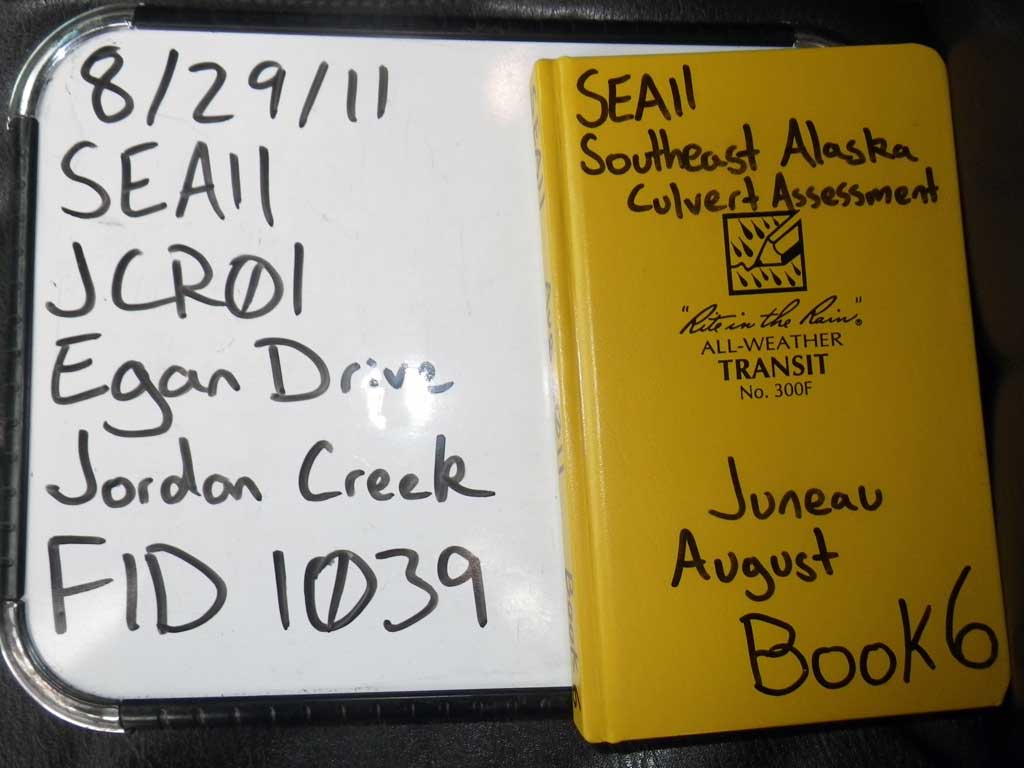 8/29/11
SEA11
JCR01
Egan Drive
Jordan Creek
FID 1039
SEA11
Southeast Alaska
Culvert Assessment
"Rite in the Rain"®
ALL-WEATHER
TRANSIT
No. 300F
Juneau
August
Book 6